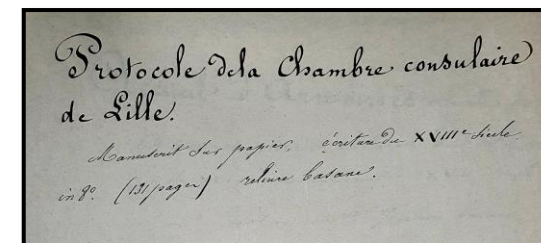 Protocole de la Chambre consulaire
de Lille.
Manuscrit sur papier, écriture du XVIIIe siècle
in 8o. (131 pages) reliure basane.